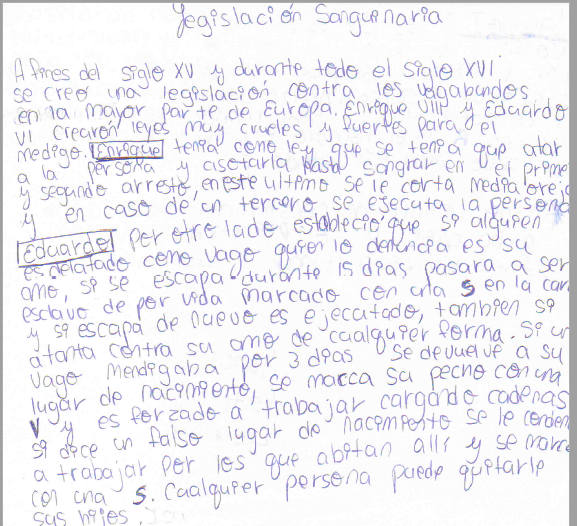 Legislación Sanguinaria
A fines del siglo XV y durante todo el siglo XVI
se creo una legislación contra los vagabundos
en la mayor parte de Europa. Enrique VIII y Eduardo
VI crearón leyes muy crueles y fuertes para el
medigo. Enrique tenia como ley que se tenia que atar
a la persona y asotarla hasta sangrar en el prime
y segundo arresto, en este ultimo se le corta media oreja
y en caso de un tercero se esecuta la persona
Eduardo por otro lado establecio que si alguien
es delatado como vago quien lo denuncia es su
amo, si se escapa durante 15 dias pasara a ser
esclavo de por vida marcado con una S en la car
y si escapa de nuevo es ejecutado, tambien si
atanta contra su amo de cualquier forma. Si un
vago mendigaba por 3 dias se devuelve a su
lugar de nacimiento, se marca su pecho con una
V y es forzado a trabajar cargando cadenas
si dice un falso lugar de nacimiento se le conden
a trabajar por los que abitan alli y se marca
con una S. Cualquier persona puede quitarle
sus hijos.